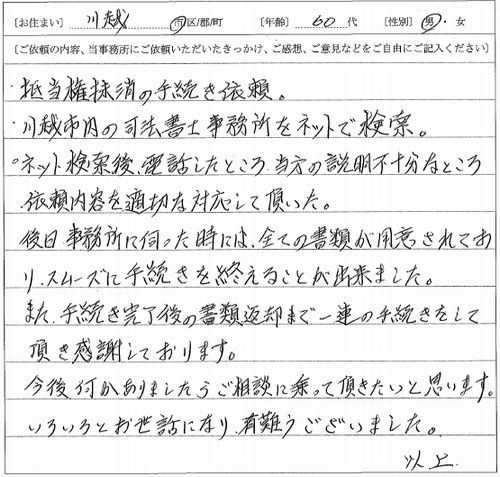 [お住まい] 川越 市区/郡/町 [年齢] 60 代 [性別] 男・女
[ご依頼の内容、当事務所にご依頼いただいたきっかけ、ご感想、ご意見などをご自由にご記入ください]
・抵当権抹消の手続き依頼。
・川越市内の司法書士事務所をネットで検索。
○ネット検索後、電話したところ、当方の説明不十分なところ
依頼内容を適切な対応して頂いた。
後日事務所に伺った時には、全ての書類が用意されてお
り、スムーズに手続きを終えることが出来ました。
また、手続き完了後の書類返却まで一連の手続きをして
頂き感謝しております。
今後何かありましたらご相談に乗って頂きたいと思います。
いろいろとお世話になり、有難うございました。
以上